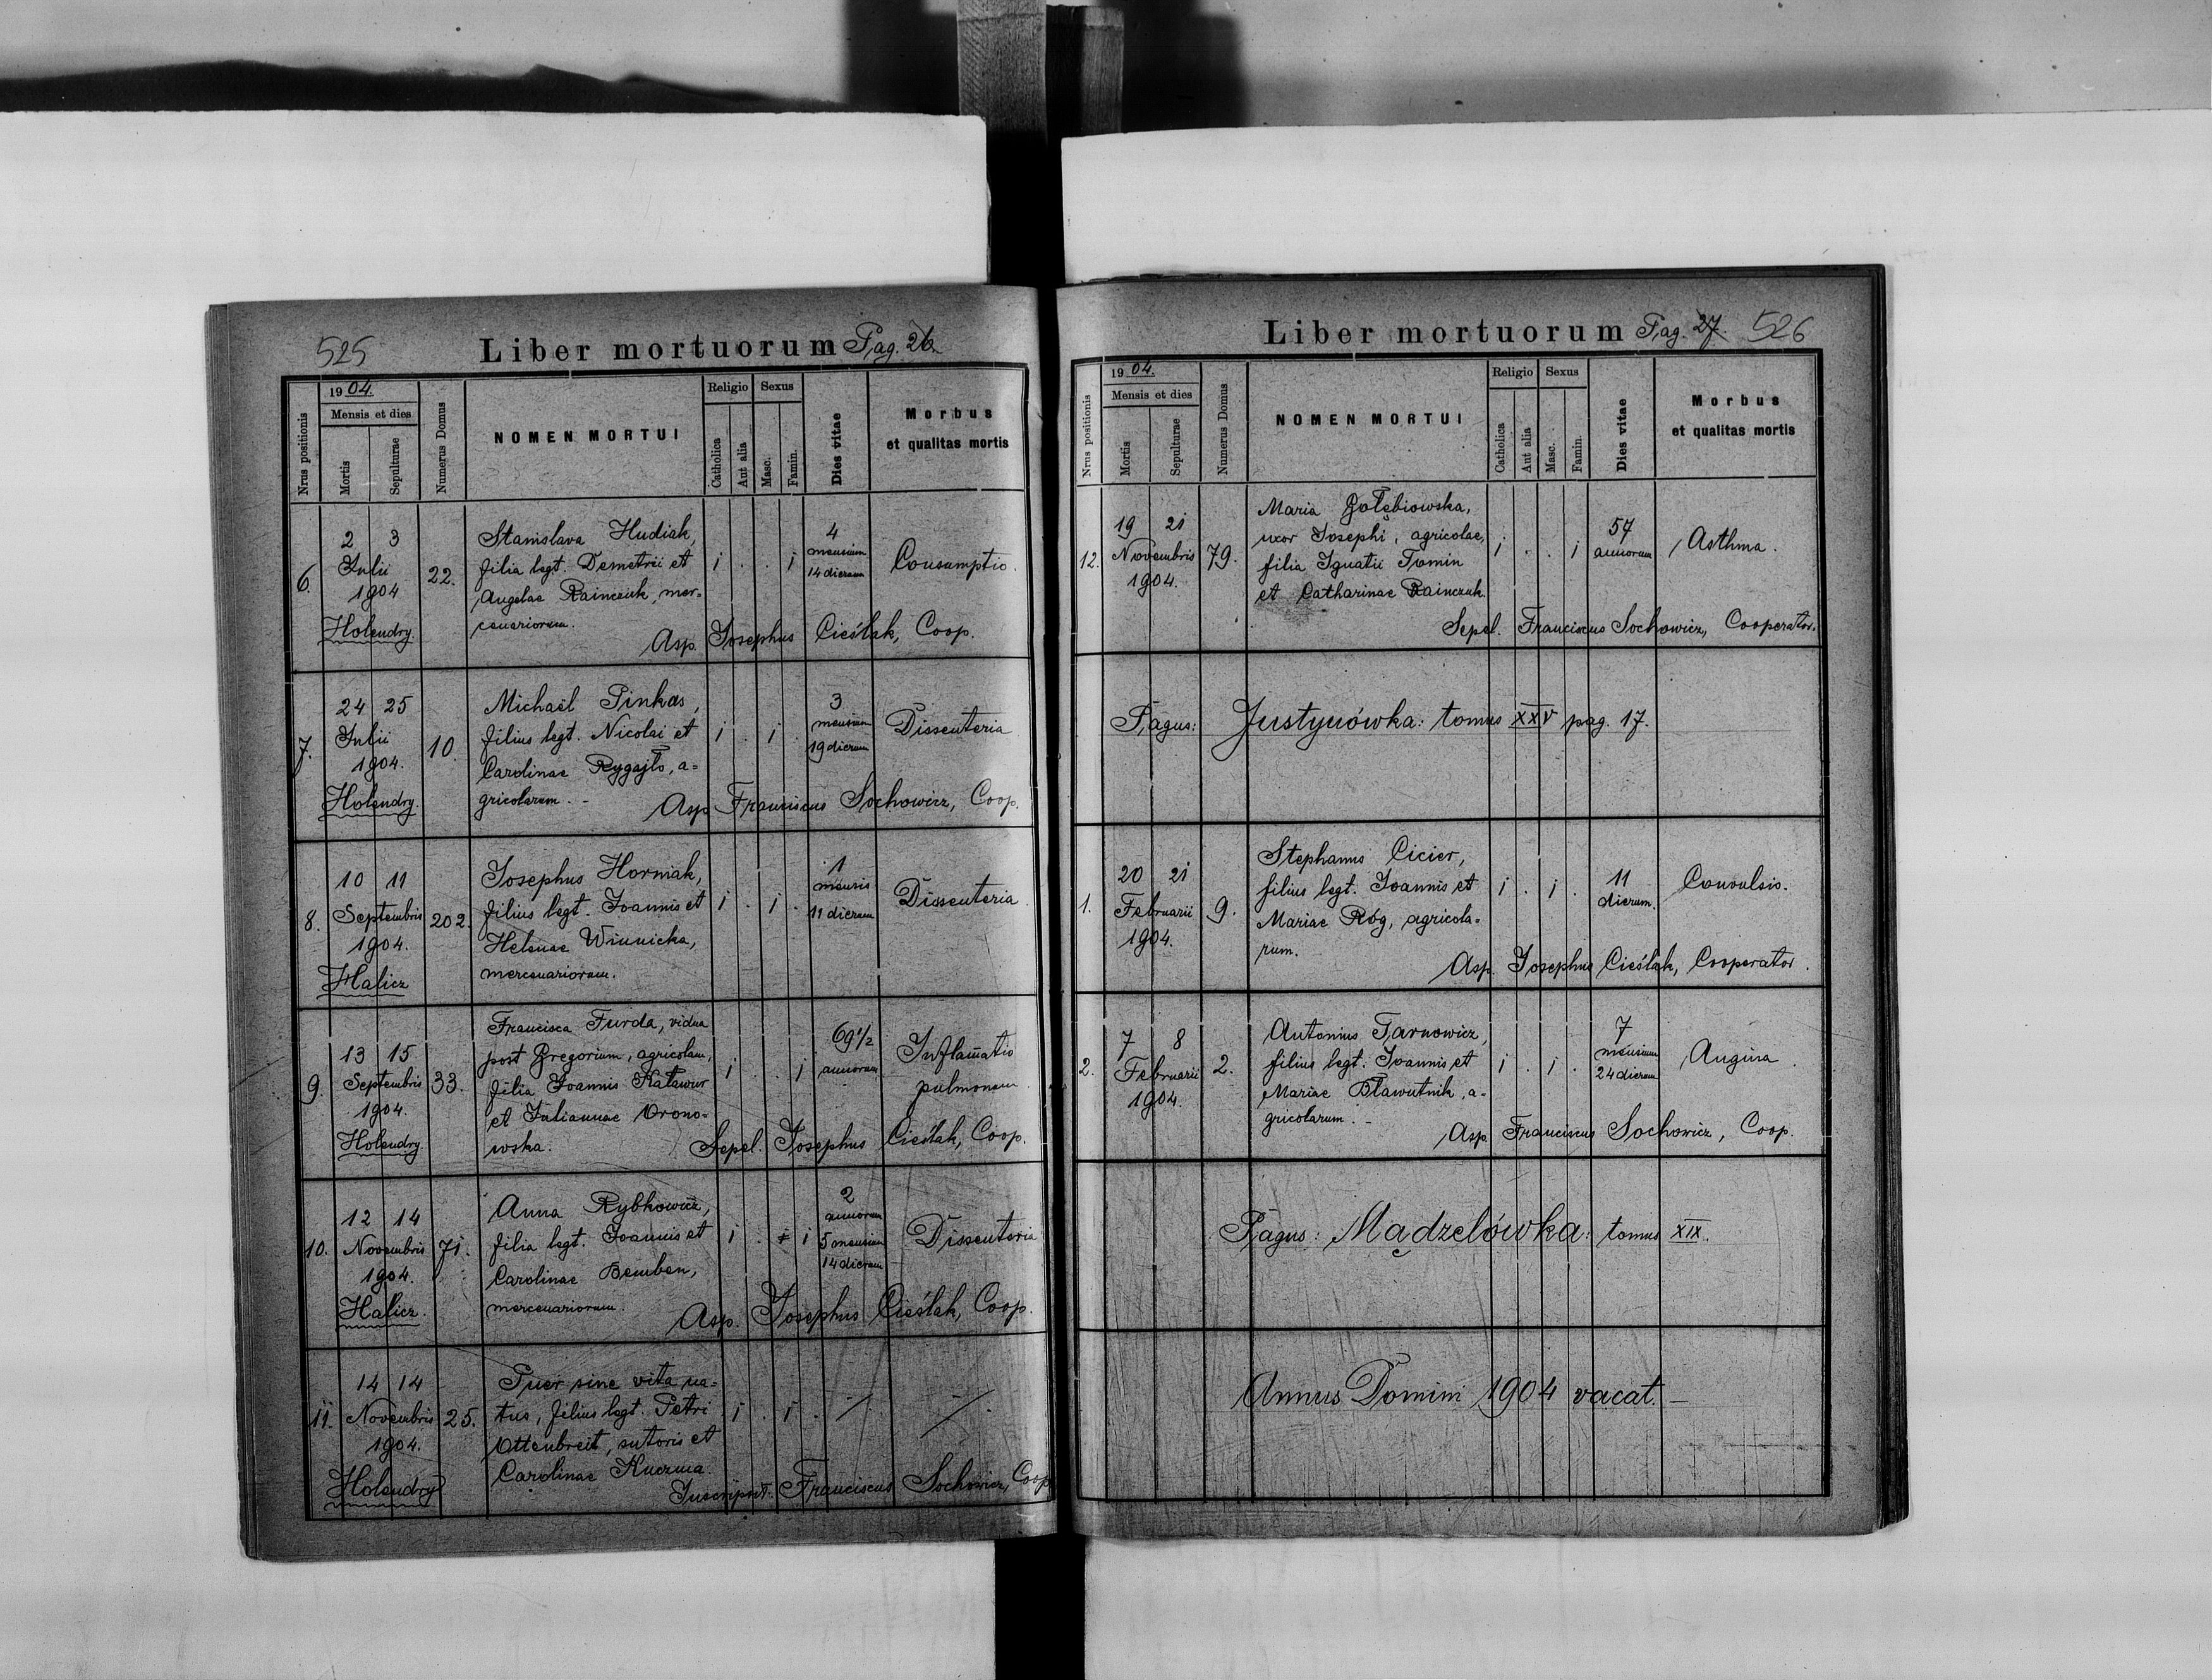 525 Liber mortuorum Pag. 26.
1904.
Nrus positionis
Mensis et dies
Mortis
Sepulturae
Numerus Domus
NOMEN MORTUI
Religio
Catholica
Aut alia
Sexus
Masc.
Famin.
Dies vitae
Morbus
et qualitas mortis
6.
2 3
Julii
1904
Holendry.
22.
Stanislava Hudiak,
filia legt. Demetrii et
Angelae Rainczuk, mer=
cenariorum.
i . . i
4
mensium
14 dierum
Consumptio.
Asp. Josephus Cieślak, Coop.
7.
24 25
Julii
1904.
Holendry.
10.
Michaël Pinkas,
filius legt. Nicolai et
Carolinae Rygajło, a=
gricolarum. -
i . i .
3
mensium
19 dierum
Dissenteria
Asp. Franciscus Sochowicz, Coop.
8.
10 11
Septembris
1904.
Halicz
202.
Josephus Horniak,
filius legt. Joannis et
Helenae Winnicka,
mercenariorum.
i . i .
1
mensis
11 dierum
Dissenteria.
9.
13 15
Septembris
1904.
Holendry.
33.
Francisca Furda, vidua
post Gregorium, agricolam,
filia Joannis Kaławur
et Juliannae Orono=
wska.
i . . i
69 1/2
annorum
Inflam̄atio
pulmonum.
Sepel. Josephus Cieślak, Coop.
10.
12 14
Novembris
1904.
Halicz.
71.
Anna Rybkowicz,
filia legt. Joannis et
Carolinae Bemben,
mercenariorum.
i . i
2
annorum
5 mensium
14 dierum
Dissenteria
Asp. Josephus Cieślak, Coop.
11.
14 14
Novembris
1904.
Holendry
25.
Puer sine vita na=
tus, filius legt. Petri
Ottenbreit, sutoris et
Carolinae Kuczma.
i . i .
Inscripsit: Franciscus Sochowicz, Coop
Liber mortuorum Pag. 27. 526
1904.
Nrus positionis
Mensis et dies
Mortis
Sepulturae
Numerus Domus
NOMEN MORTUI
Religio
Catholica
Aut alia
Sexus
Masc.
Famin.
Dies vitae
Morbus
et qualitas mortis
12.
19 21
Novembris
1904.
79.
Maria Gołębiowska,
uxor Josephi, agricolae,
filia Ignatii Tomin
et Catharinae Rainczuk.
i . . i
57
annorum
Asthma.
Sepel. Franciscus Sochowicz, Cooperator.
Pagus: Justynówka: tomus XXV pag. 17.
1.
20 21
Februarii
1904.
9.
Stephanus Cicier,
filius legt. Joannis et
Mariae Róg, agricola=
rum.
i . i .
11
dierum.
Convulsio.
Asp. Josephus Cieślak, Cooperator.
2.
7 8
Februarii
1904.
2.
Antonius Tarnowicz,
filius legt. Joannis et
Mariae Bławutnik, a=
gricolarum. -
i . i .
7
mensium
24 dierum
Angina.
Asp. Franciscus Sochowicz, Coop.
Pagus: Mądzelówka: tomus XIX.
Annus Domini 1904 vacat. -